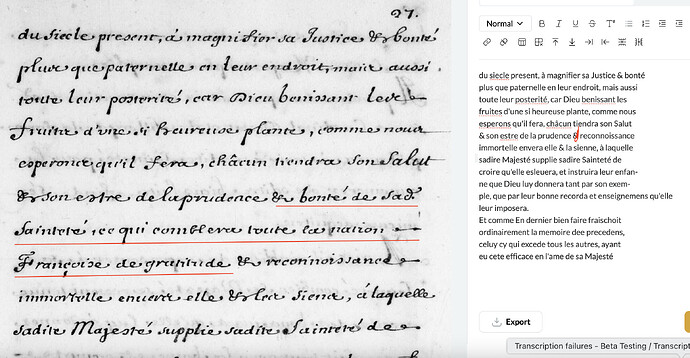 27.
du siecle present, à magnifier sa Justice & bonté
plus que paternelle en leur endroit, mais aussi
toute leur posterité, car Dieu benissant les
fruits d'une si heureuse plante, comme nous
esperons qu'il fera, châcun tiendra son Salut
& son estre de la prudence & bonté de sad.
Sainteté, ce qui comblera toute la nation
Françoise de gratitude & reconnoissance
immortelle envers elle & les siens, à laquelle
sadite Majesté supplie sadite Sainteté de
Normal
B I U S
du siecle present, à magnifier sa Justice & bonté
plus que paternelle en leur endroit, mais aussi
toute leur posterité, car Dieu benissant les
fruites d'une si heureuse plante, comme nous
esperons qu'il fera, châcun tiendra son Salut
& son estre de la prudence & reconnoissance
immortelle envera elle & la sienne, à laquelle
sadire Majesté supplie sadire Sainteté de
croire qu'elle esleuera, et instruira leur enfan-
ne que Dieu luy donnera tant par son exem-
ple, que par leur bonne recorda et enseignemens qu'elle
leur imposera.
Et comme En dernier bien faire fraischoit
ordinairement la memoire dee precedens,
celuy cy qui excede tous les autres, ayant
eu cete efficace en l'ame de sa Majesté
Export
Transcription failures - Beta Testing / Transcript